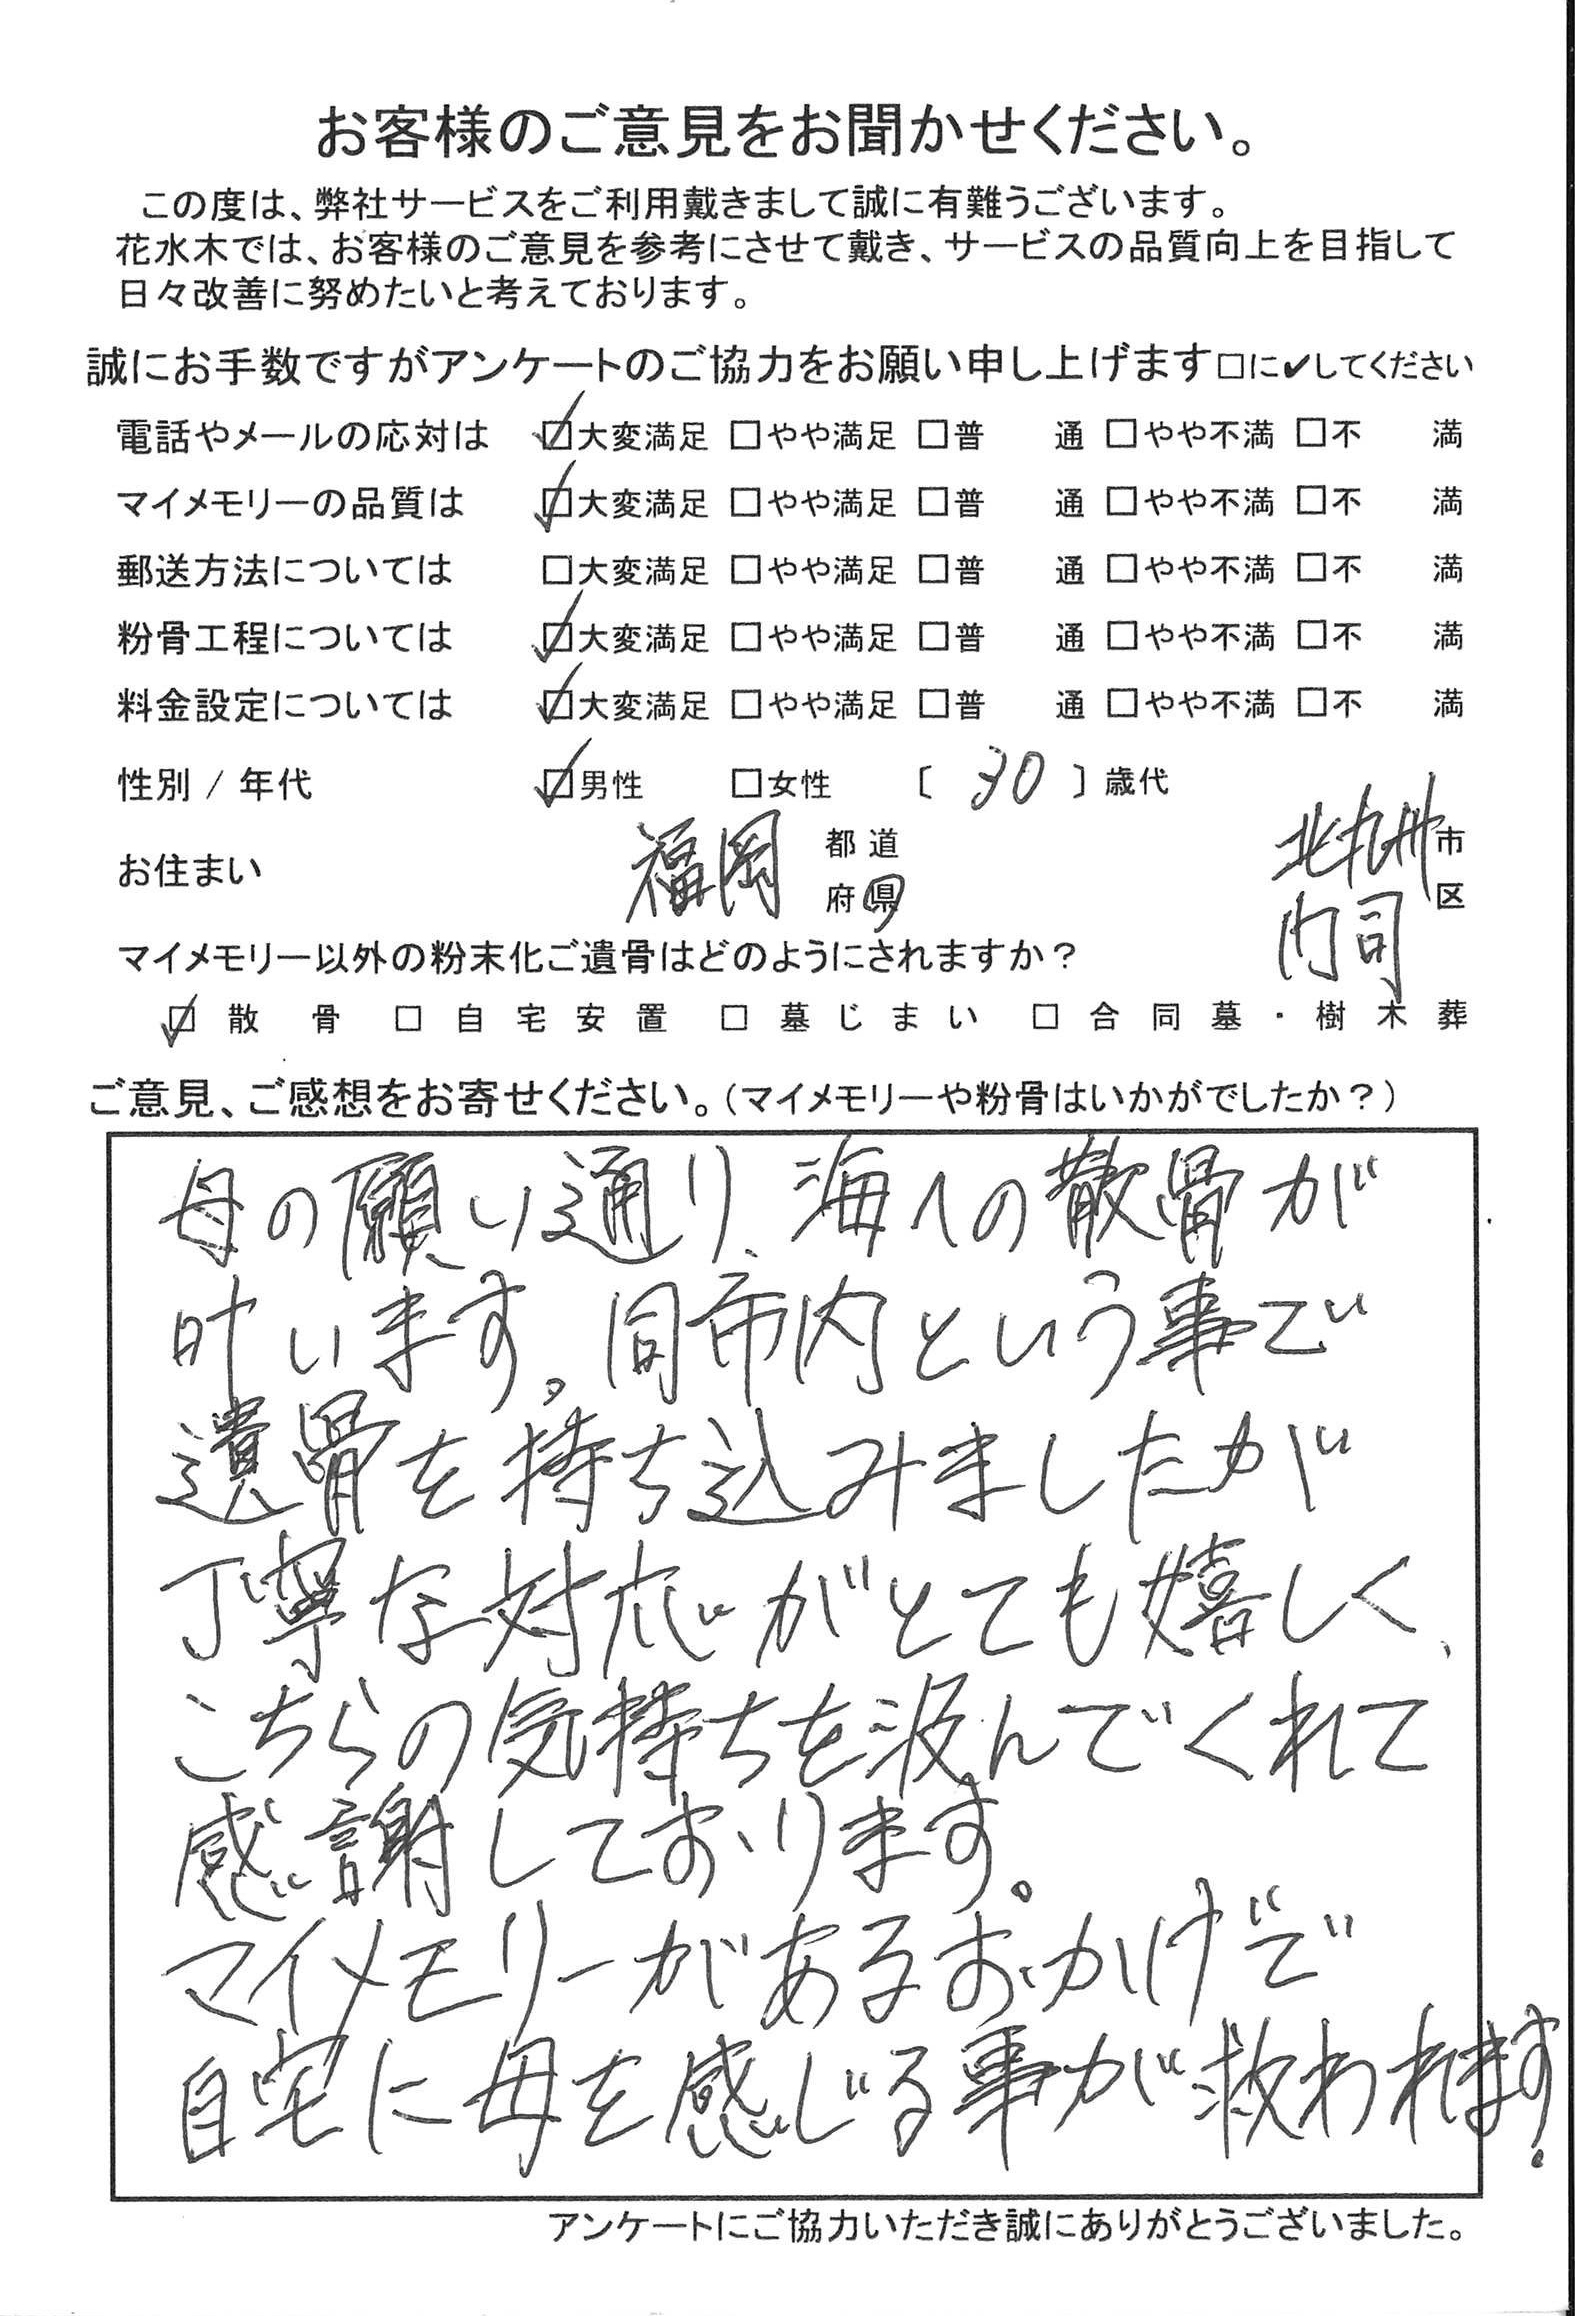 お客様のご意見をお聞かせください。
この度は、弊社サービスをご利用戴きまして誠に有難うございます。
花水木では、お客様のご意見を参考にさせて戴き、サービスの品質向上を目指して
日々改善に努めたいと考えております。
誠にお手数ですがアンケートのご協力をお願い申し上げます□に✔してください
電話やメールの応対は ☑大変満足 □やや満足 □普 通 □やや不満 □不 満
マイメモリーの品質は ☑大変満足 □やや満足 □普 通 □やや不満 □不 満
郵送方法については □大変満足 □やや満足 □普 通 □やや不満 □不 満
粉骨工程については ☑大変満足 □やや満足 □普 通 □やや不満 □不 満
料金設定については ☑大変満足 □やや満足 □普 通 □やや不満 □不 満
性別 / 年代 ☑男性 □女性 〔 30 〕歳代
お住まい 福岡 都道府県 北九州 市
門司 区
マイメモリー以外の粉末化ご遺骨はどのようにされますか？
☑ 散骨 □ 自宅安置 □ 墓じまい □ 合同墓・樹木葬
ご意見、ご感想をお寄せください。（マイメモリーや粉骨はいかがでしたか？）
母の願い通り、海への散骨が
叶います。同市内という事で
遺骨を持ち込みましたが
丁寧な対応がとても嬉しく、
こちらの気持ちを汲んでくれて
感謝しております。
マイメモリーがあるおかげで
自宅に母を感じる事が救われます。
アンケートにご協力いただき誠にありがとうございました。